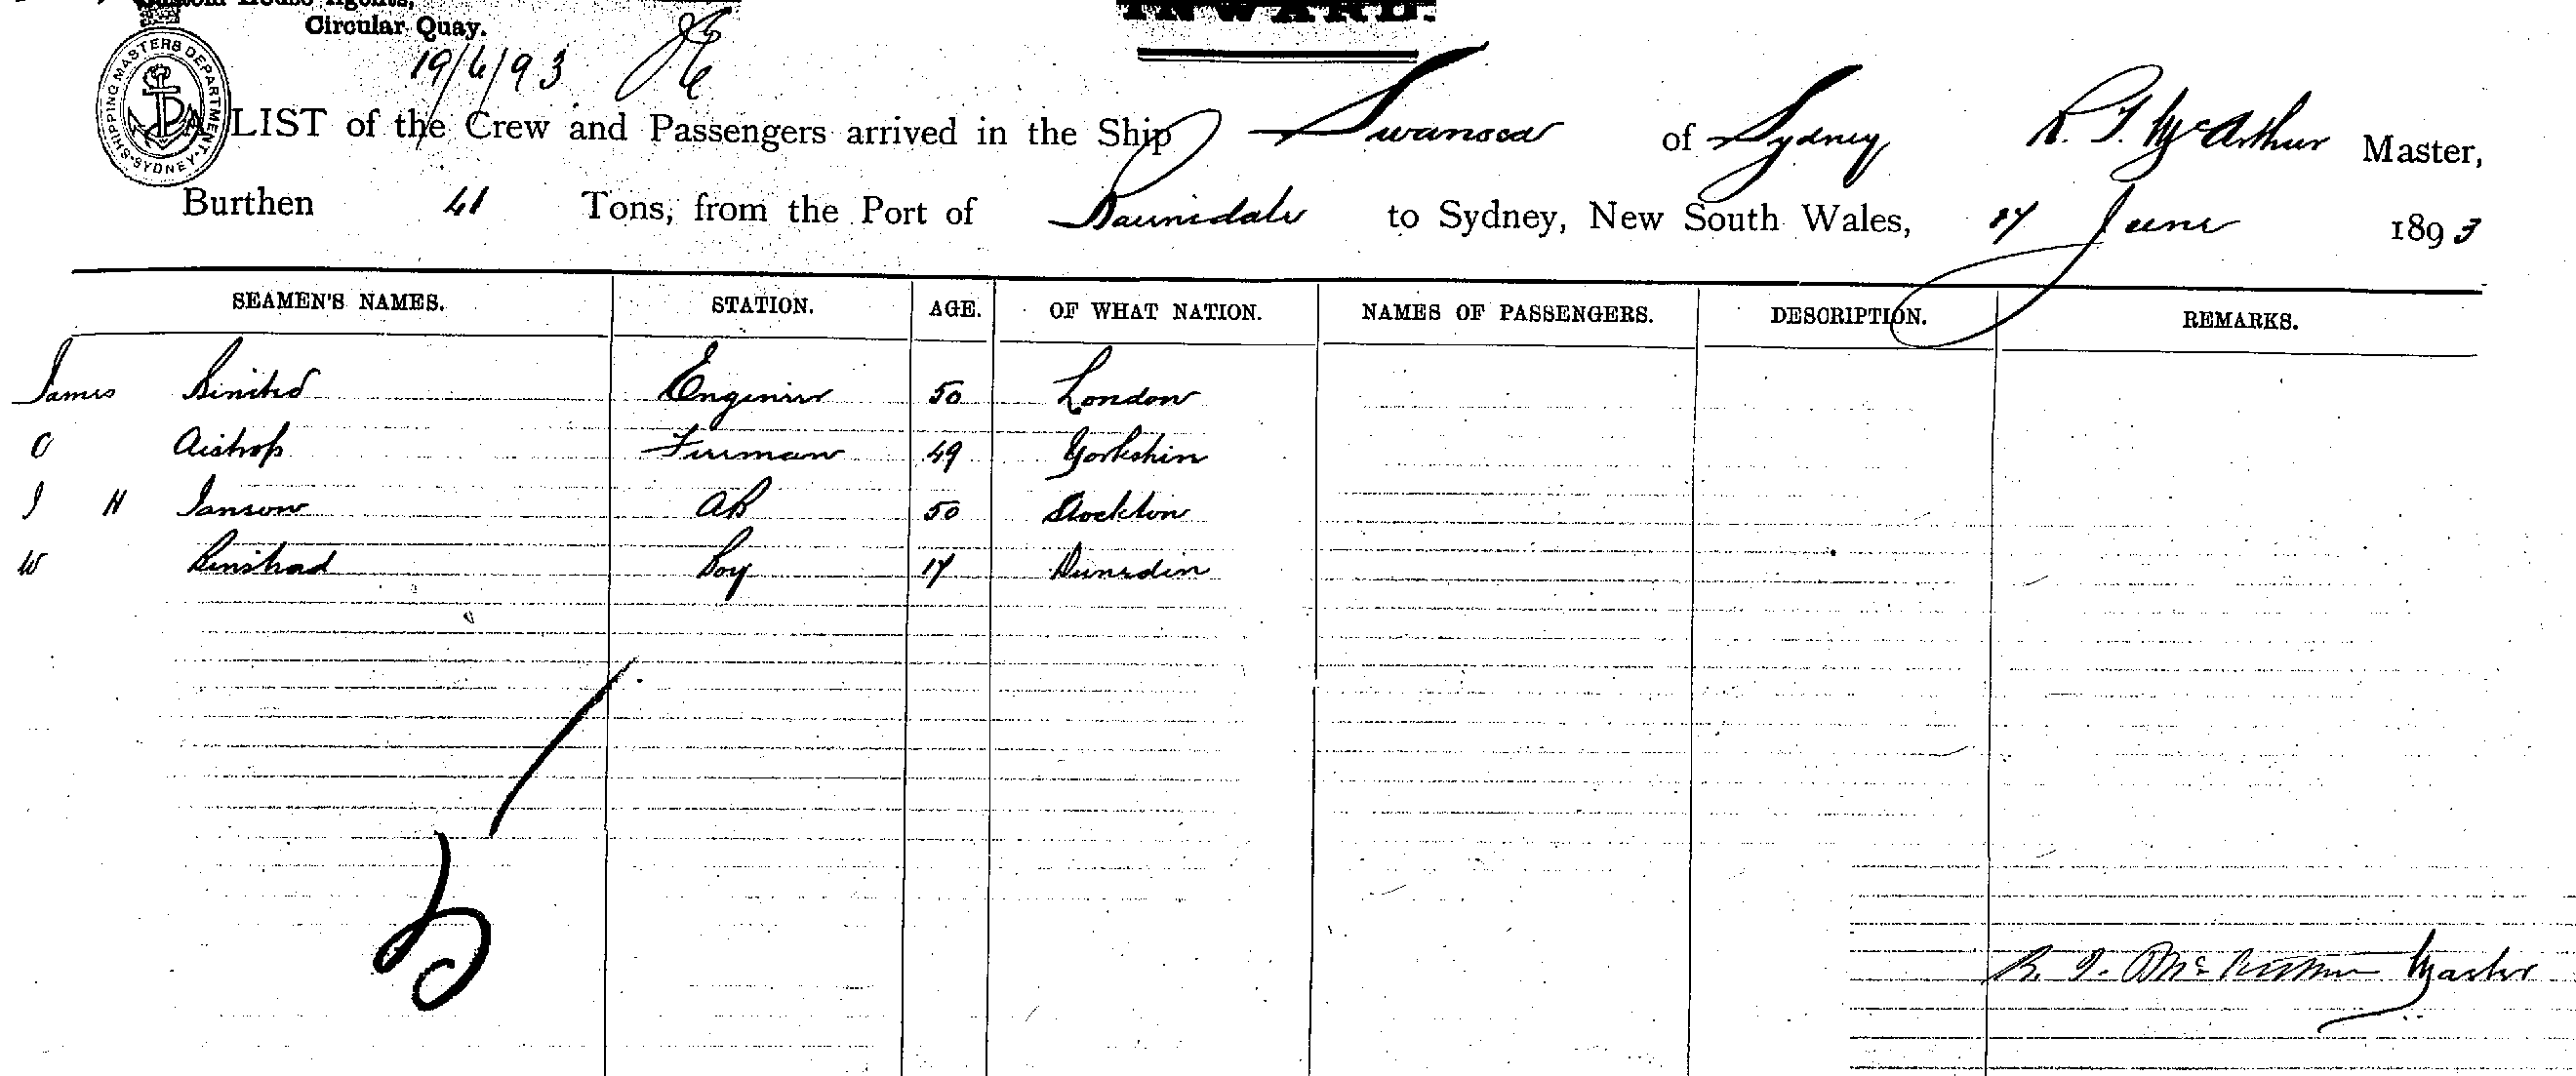 Custom House Agents,
Circular Quay.
INWARD.
SHIPPING MASTERS DEPARTMENT SYDNEY
19/6/93
A LIST of the Crew and Passengers arrived in the Ship Swansea of Sydney R. T. McArthur Master,
Burthen 41 Tons, from the Port of Bairnsdale to Sydney, New South Wales, 17 June 1893
SEAMEN'S NAMES. STATION. AGE. OF WHAT NATION. NAMES OF PASSENGERS. DESCRIPTION. REMARKS.
James Engineer 50 London
O Aishop Fireman 49 Yorkshire
J H Janson AB 50 Stockton
W Boy 17 Dunedin
R. T. McArthur Master